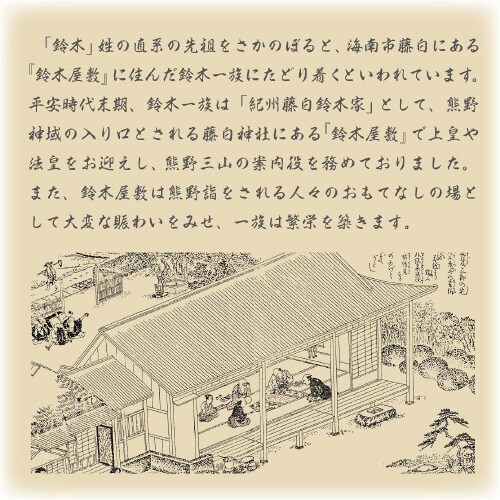 「鈴木」姓の直系の先祖をさかのぼると、海南市藤白にある
『鈴木屋敷』に住んだ鈴木一族にたどり着くといわれています。
平安時代末期、鈴木一族は「紀州藤白鈴木家」として、熊野
神域の入り口とされる藤白神社にある『鈴木屋敷』で上皇や
法皇をお迎えし、熊野三山の案内役を務めておりました。
また、鈴木屋敷は熊野詣をされる人々のおもてなしの場と
して大変な賑わいをみせ、一族は繁栄を築きます。